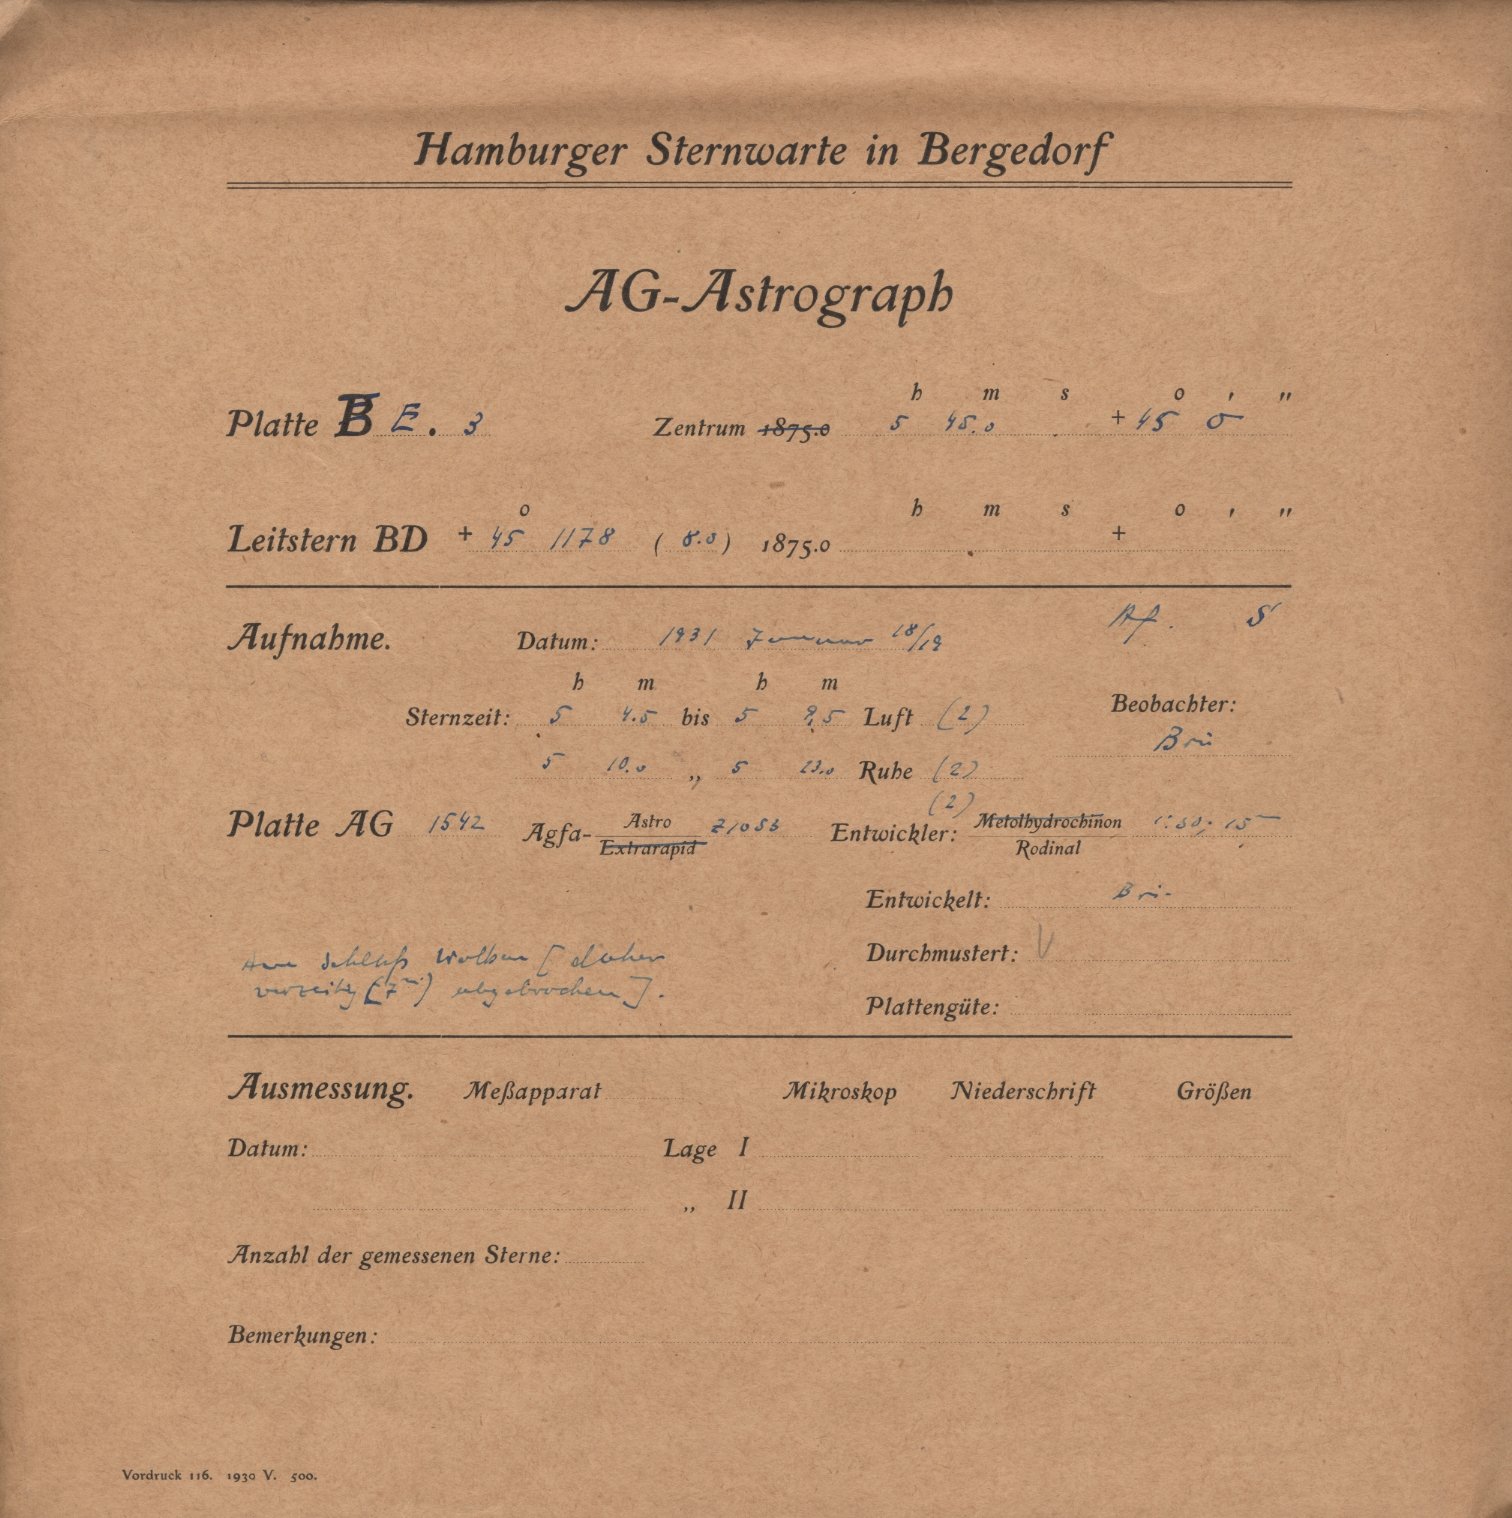 Hamburger Sternwarte in Bergedorf
AG-Astrograph
h m s o ' "
Platte B E. 3 Zentrum 1875.0 5 45.0 + 45 0
o h m s o ' "
Leitstern BD + 45 1178 (8.0) 1875.0 +
Af. S
Aufnahme. Datum: 1931 Januar 18/19
h m h m
Sternzeit: 5 4.5 bis 5 9,5 Luft (2) Beobachter:
Brü
5 10.0 „ 5 23.0 Ruhe (2)
(2)
Platte AG 1542 Agfa- Astro Z1053 Entwickler: Metolhydrochinon 1:50; 15
Extrarapid Rodinal
Entwickelt: Brü.
Am Schluß Wolken [daher Durchmustert: V
vorzeitig (7m) abgebrochen].
Plattengüte:
Ausmessung. Meßapparat Mikroskop Niederschrift Größen
Datum: Lage I
„ II
Anzahl der gemessenen Sterne:
Bemerkungen:
Vordruck 116. 1930 V. 500.